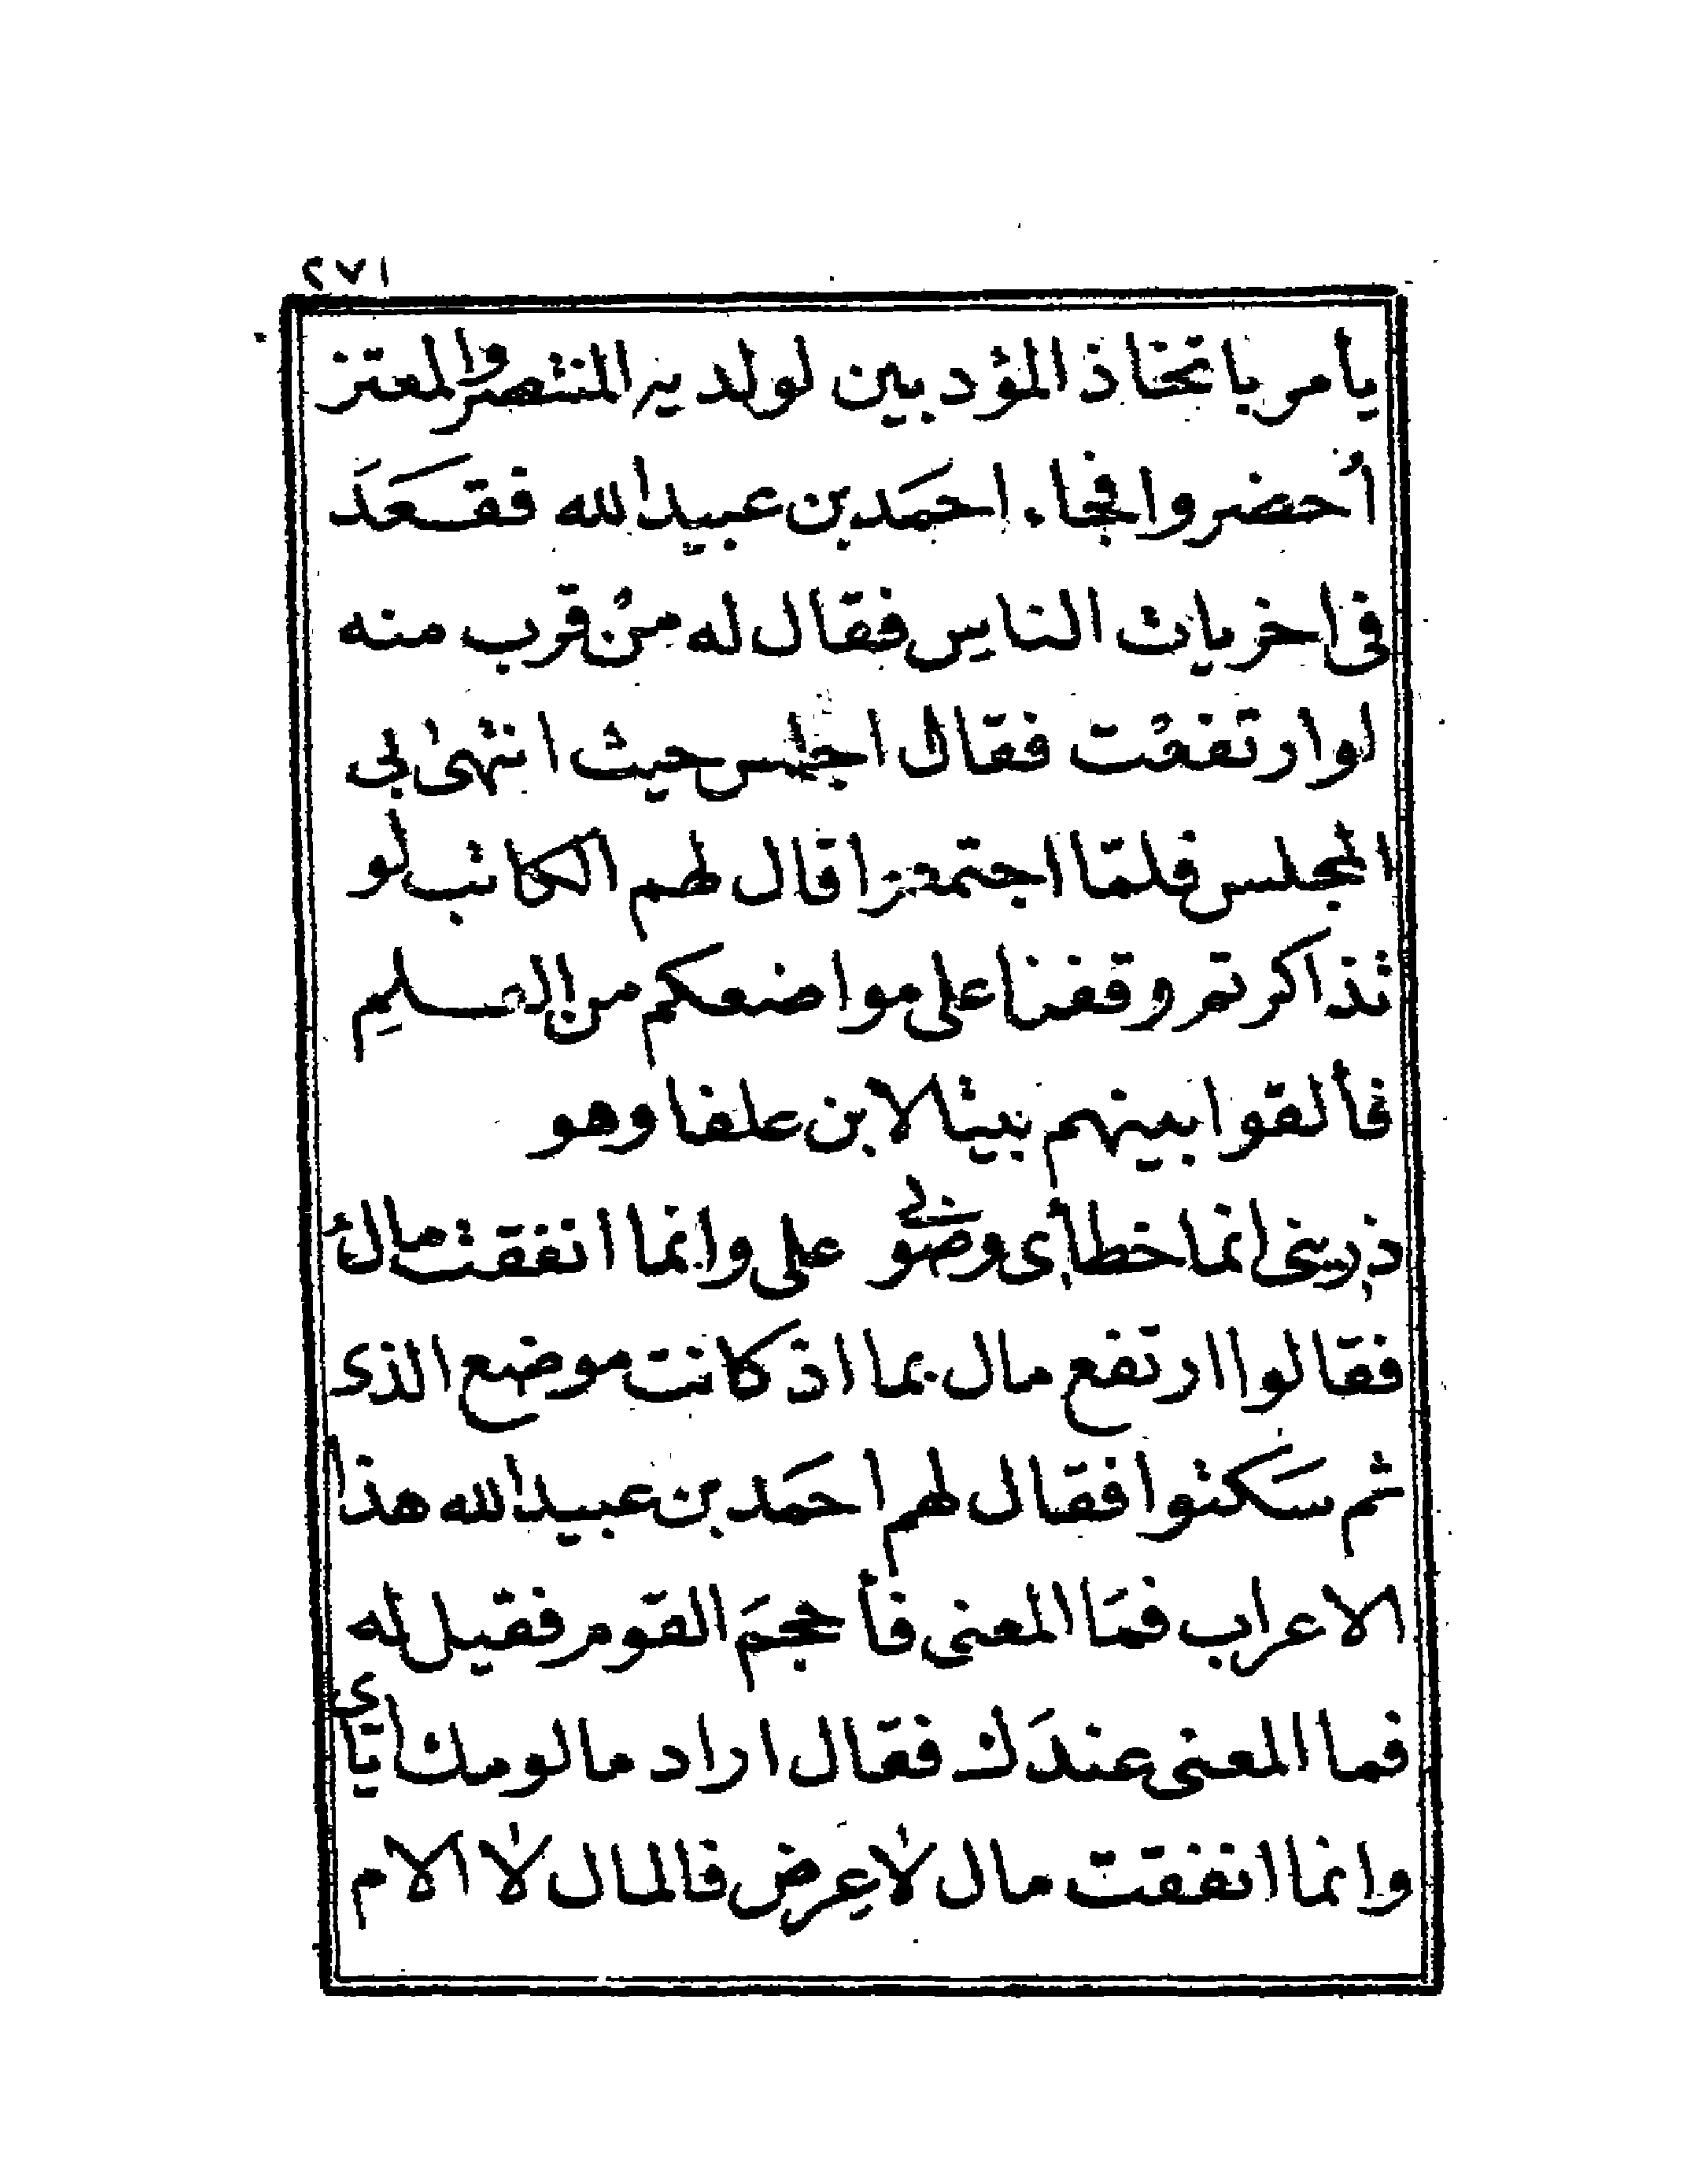 ٢٧١
يأمر باتخاذ المؤدبين لولديه المنتصر والمعتز
أُحضروا فجاء احمَد بن عبيد الله فقـعَدَ
فى اخريات الناس فقال له منْ قرب منه
لوارتفعْت فقال اجلس حيث انتهىٰ بى
المجلس فلمّا اجتمعوا قال لهم الكاتب لو
تذاكرتم وقفنا على مواضعكم من العـلم
فألقوا بينهم بيتا لابن علفا وهو
ذرينى انما خطأى وصوبى على وانما انفقت مال
فقالوا ارتفع مال بما اذ كانت موضع الذى
ثم سَكتوا فقال لهم احمَد بن عبيد الله هذا
الاعراب فمَا المعنى فأحجمَ القوم فقيل له
فما المعنى عندَك فقال اراد مالومك اياى
وانما انفقت مال لا عِرض فالمال لا الام